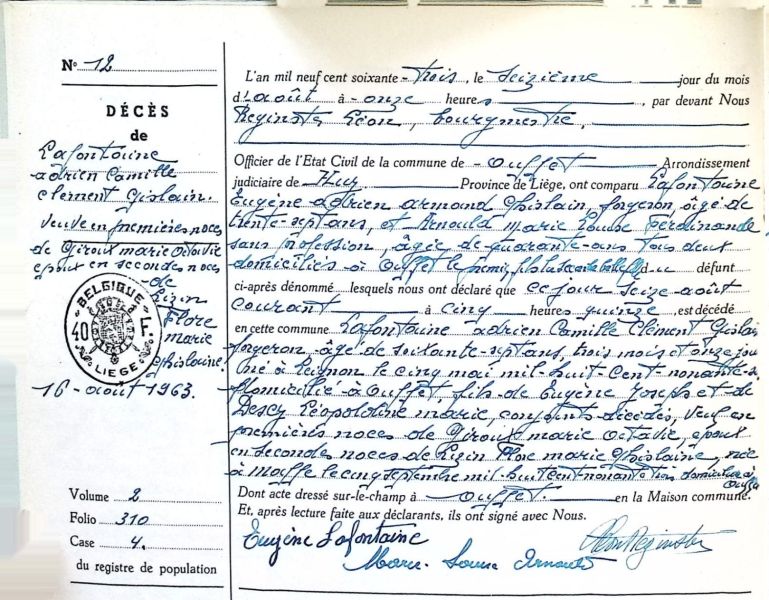 N° 12
DÉCÈS
de
Lafontaine
Adrien Camille
Clément Ghislain.
veuf en premières noces
de Giroux Marie Octavie
époux en secondes noces
de
Lizin
Flore
Marie
Ghislaine.
BELGIQUE
40 F.
LIEGE
16 - août 1963.
Volume 2
Folio 310
Case 4.
du registre de population
L'an mil neuf cent soixante-trois, le seizième jour du mois
d'août à onze heures, par devant Nous
Reginster Léon, bourgmestre,
Officier de l'Etat Civil de la commune de Ouffet Arrondissement
judiciaire de Huy Province de Liège, ont comparu Lafontaine
Eugène Adrien Armand Ghislain, forgeron, âgé de
trente-sept ans, et Arnould Marie Louise Ferdinande
sans profession âgée de quarante ans tous deux
domiciliés à Ouffet le premier fils la seconde belle-fille du défunt
ci-après dénommé lesquels nous ont déclaré que ce jour seize août
courant à cinq heures quinze, est décédé
en cette commune Lafontaine Adrien Camille Clément Ghislai
forgeron, âgé de soixante-sept ans, trois mois et onze jou
né à Leignon le cinq mai mil-huit-cent nonante-s
domicilié à Ouffet, fils de Eugène Joseph et de
Descy Léopoldine Marie, conjoints décédés, veuf en
premières noces de Giroux Marie Octavie, époux
en secondes noces de Lizin Flore Marie Ghislaine, née
à Moffe le cinq septembre mil huit cent nonante trois domiciliée à
Ouffet
Dont acte dressé sur-le-champ à Ouffet. en la Maison commune.
Et, après lecture faite aux déclarants, ils ont signé avec Nous.
Eugène Lafontaine
Léon Reginster
Marie-Louise Arnould